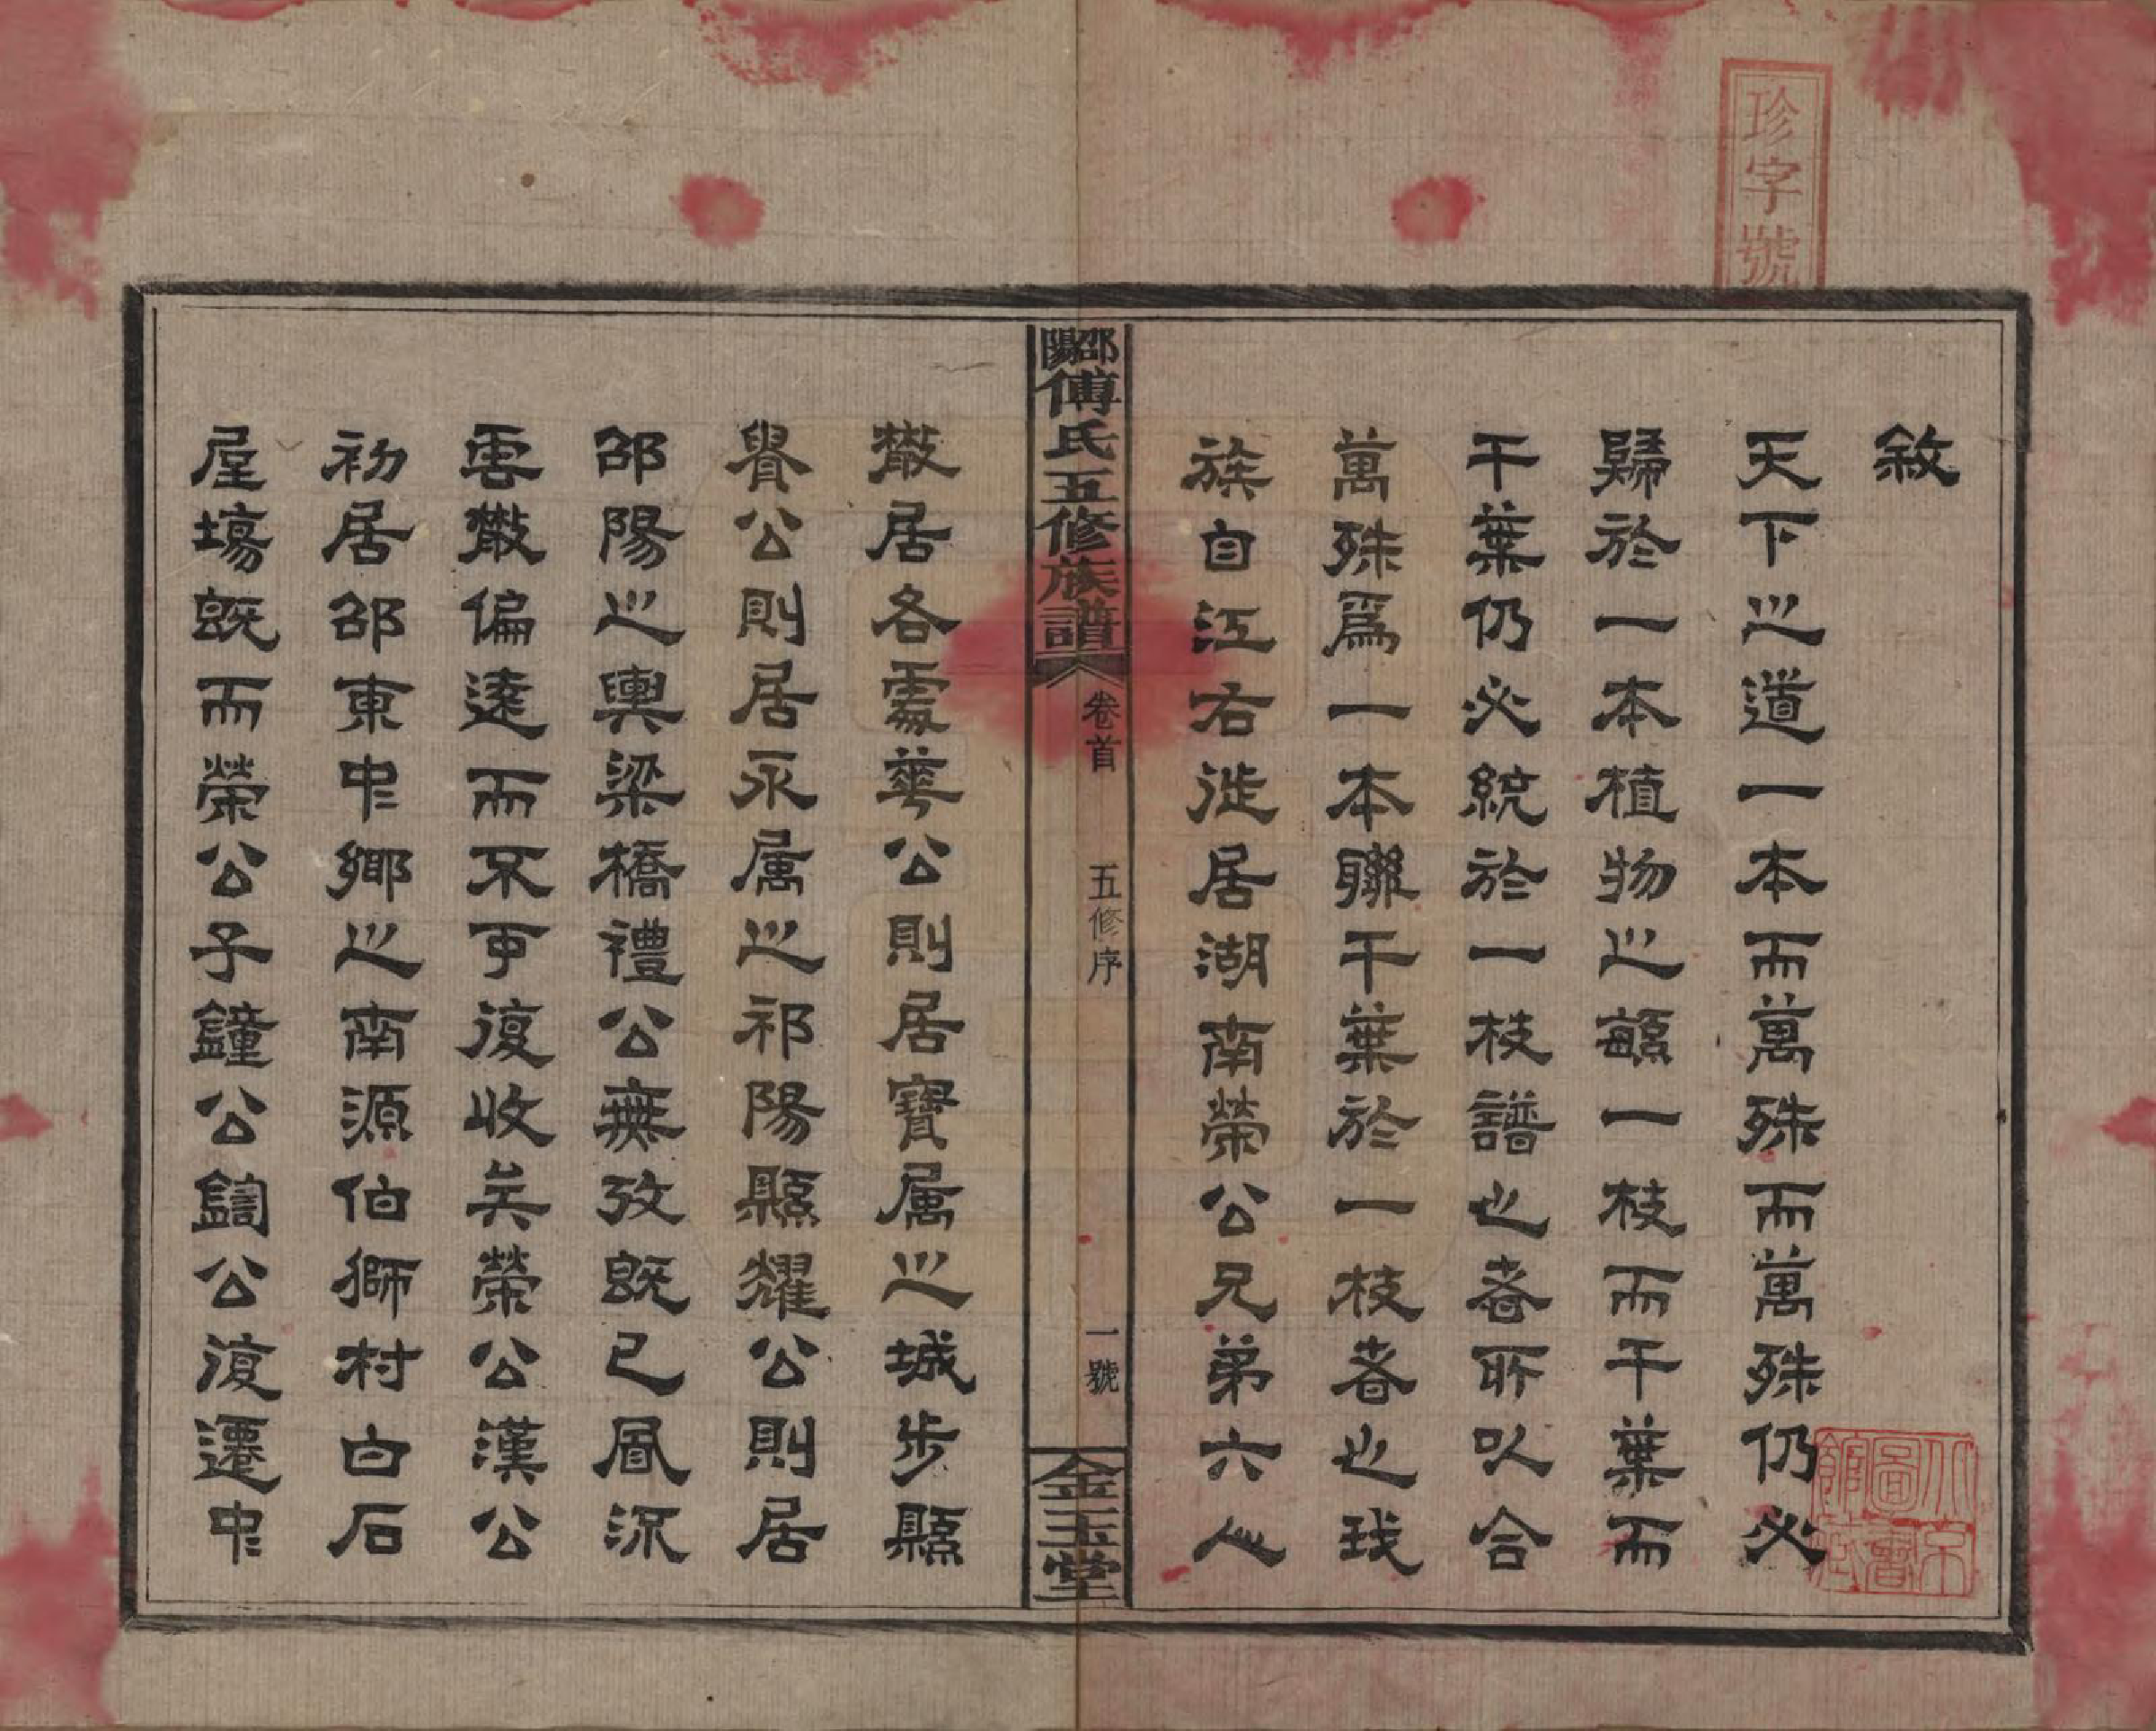 珍字號
敘
天下之道一本而萬殊而萬殊仍必
歸於一本植物之繇一枝而千葉而
千葉仍必統於一枝譜也者所以合
萬殊爲一本聯千葉於一枝者也我
族自江右徙居湖南榮公兄弟六人
邵陽傅氏五修族譜
卷首
五修序
一號
金玉堂
散居各處華公則居寶属之城步縣
貴公則居永属之祁陽縣耀公則居
邵陽之輿梁橋禮公無攷既已風流
雲散偏遠而不可復收矣榮公漢公
初居邵東中鄉之南源伯獅村白石
屋塲既而榮公子鐘公鑄公復遷中
北京圖書館藏